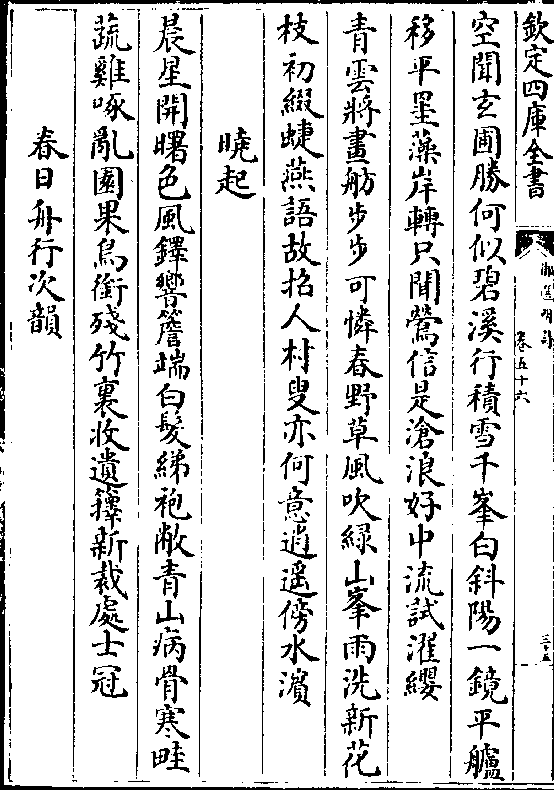 欽定四庫全書
御選明詩
卷五十六
三十五
空聞玄圃勝何似碧溪行積雪千峯白斜陽一鏡平艫
移平墨藻岸轉只聞鶯信是滄浪好中流試濯纓
青雲將畫舫步步可憐春野草風吹緑山峯雨洗新花
枝初綴蜨燕語故招人村叟亦何意逍遥傍水濱
曉起
晨星開曙色風鐸響簷端白髮綈袍敝青山病骨寒畦
蔬雞啄亂園果鳥銜殘竹裏收遺籜新裁處士冠
春日舟行次韻